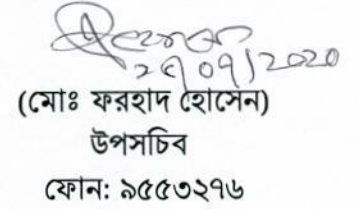 ২৫/০৭/2020
(মোঃ ফরহাদ হোসেন)
উপসচিব
ফোন: ৯৫৫৩২৭৬